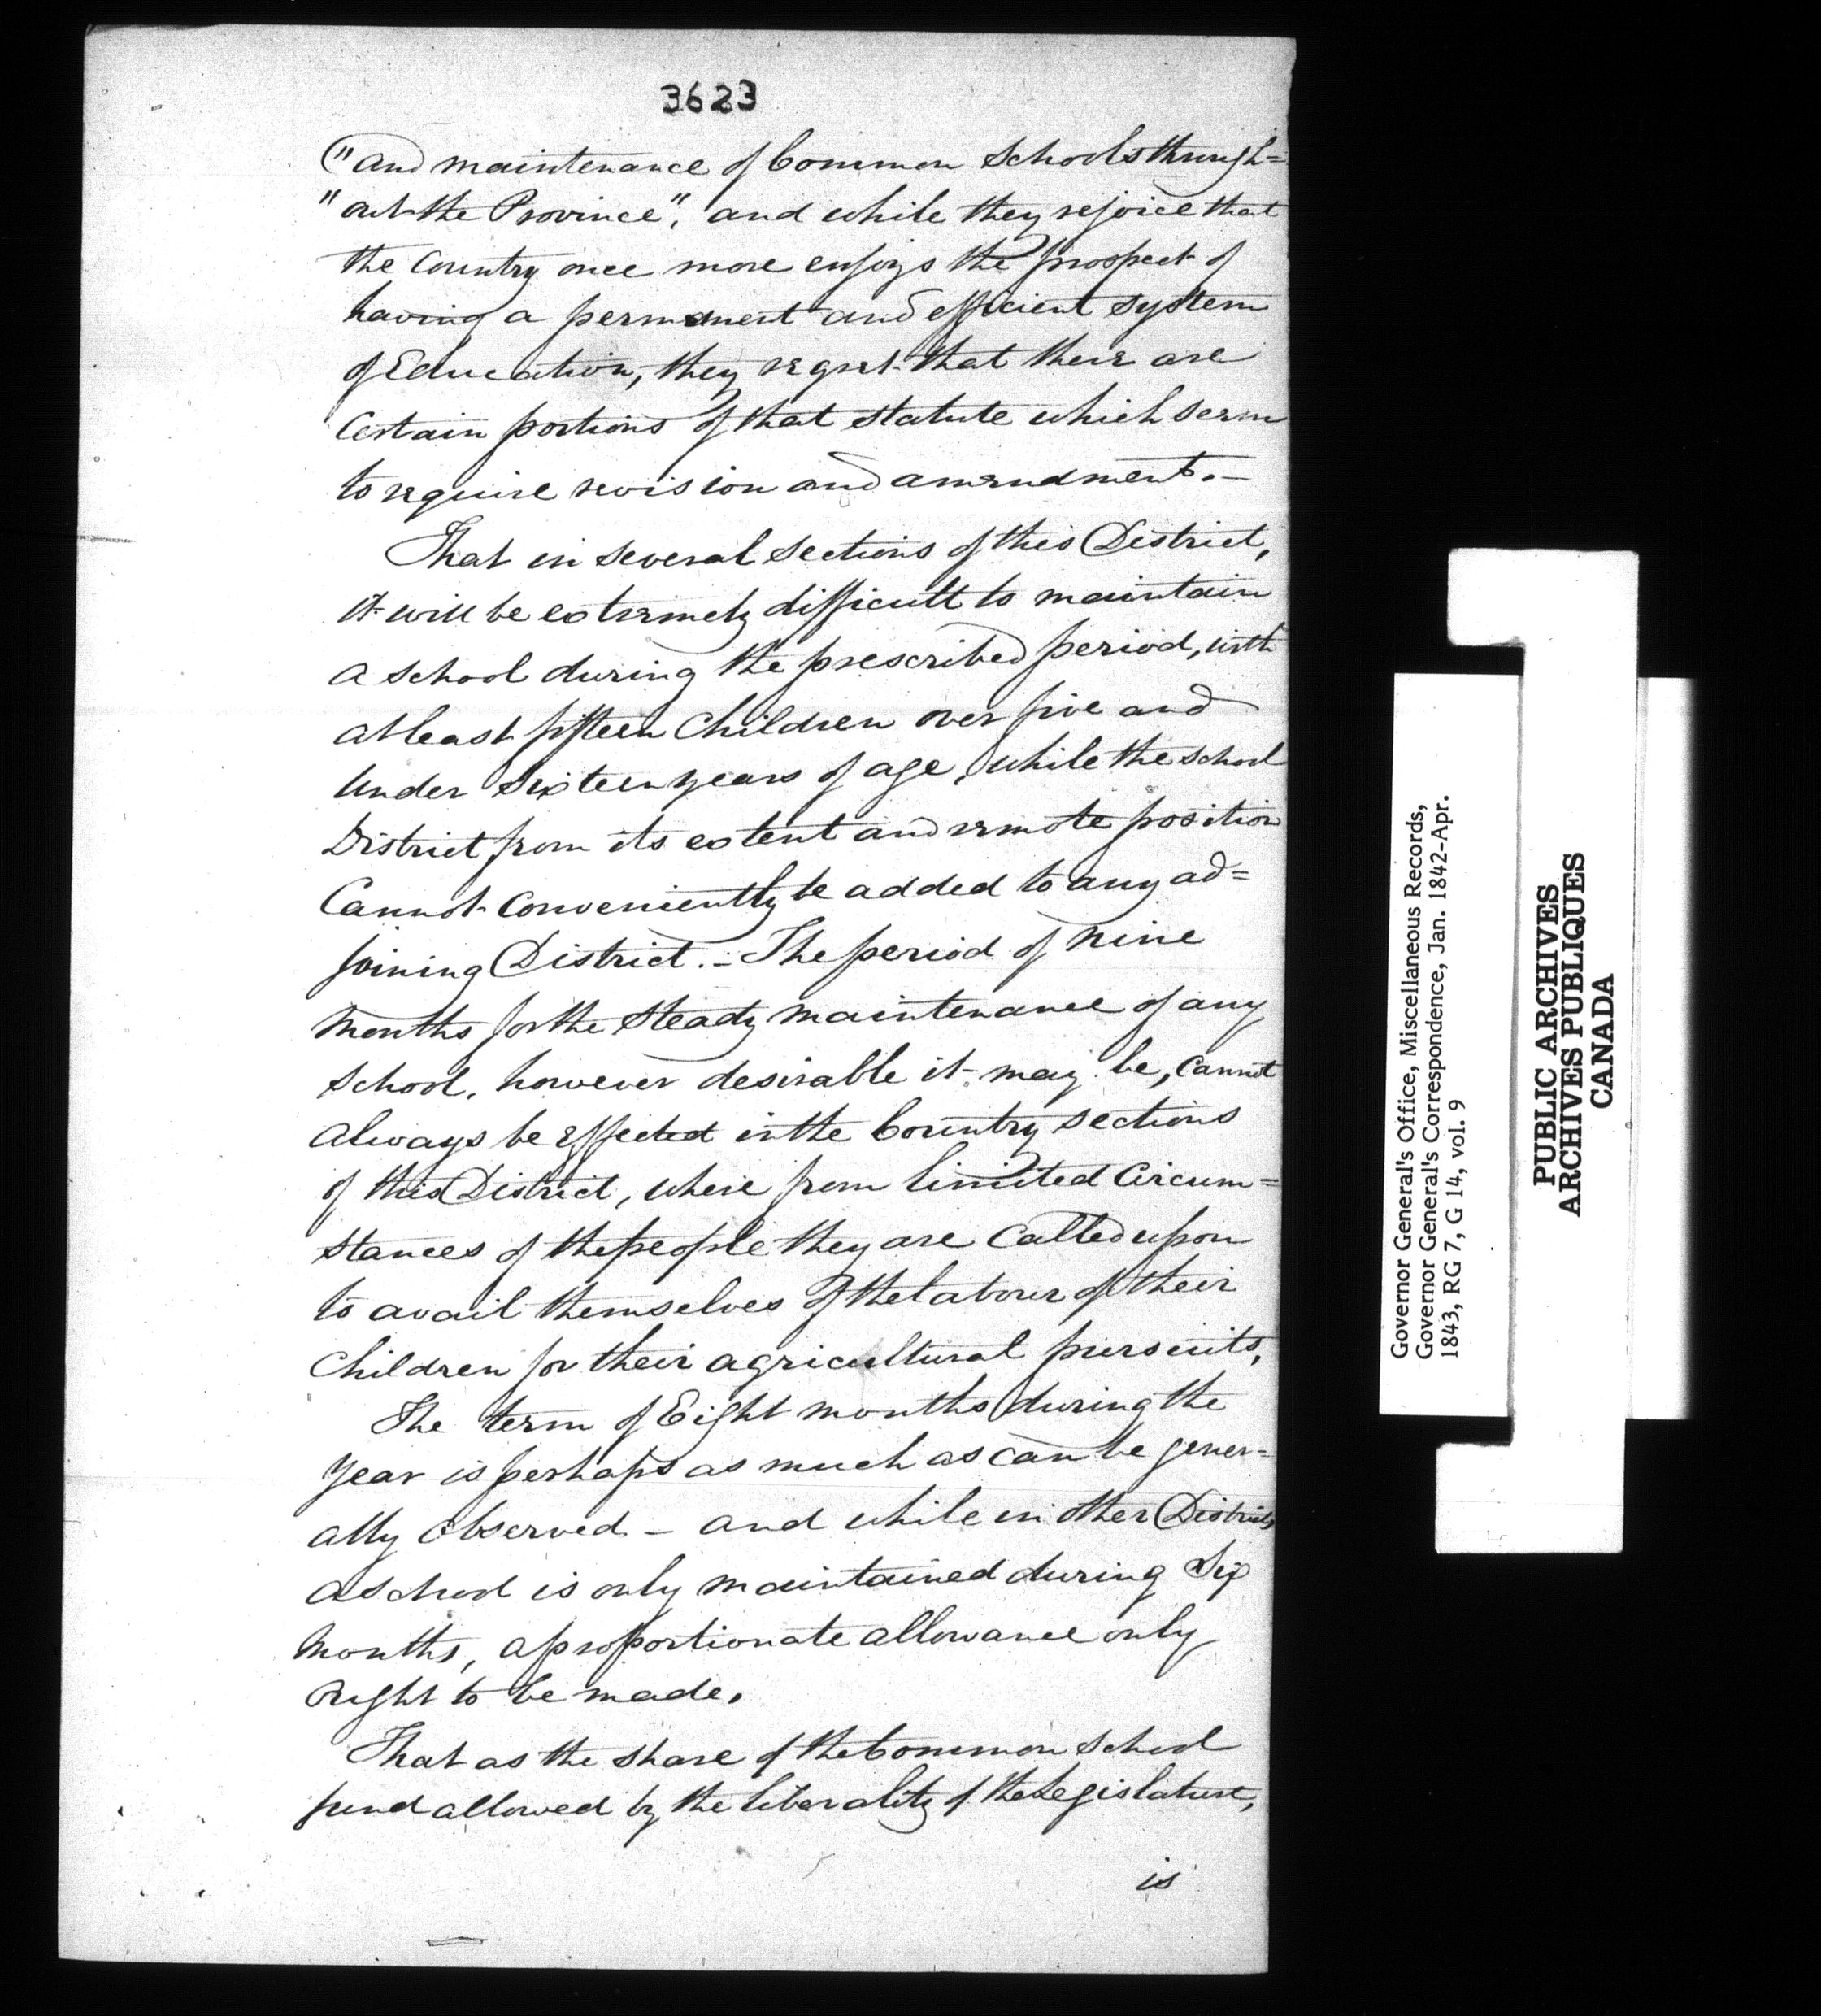 3623
("and maintenance of Common Schools through=
"out the Province", and while they rejoice that
the Country once more enjoys the prospect of
having a permanent and efficient system
of Education, they regret that there are
Certain portions of that Statute which seem
to require revision and amendment.—
That in several sections of this District,
it will be extremely difficult to maintain
a school during the prescribed period, with
at least fifteen Children over five and
under Sixteen years of age, while the school
District from its extent and remote position
Cannot conveniently be added to any ad=
joining District.— The period of nine
months for the steady maintenance of any
School, however desirable it may be, cannot
always be effected in the Country sections
of this District, where from limited Circum=
stances of the people they are Called upon
to avail themselves of the labour of their
Children for their agricultural pursuits,
The term of Eight months during the
Year is perhaps as much as can be gener=
ally observed — and while in other Districts
a school is only maintained during Six
months, a proportionate allowance only
ought to be made.
That as the share of the Common School
fund allowed by the liberality of the Legislature,
is
Governor General's Office, Miscellaneous Records,
Governor General's Correspondence, Jan. 1842-Apr.
1843, RG 7, G 14, vol. 9
PUBLIC ARCHIVES
ARCHIVES PUBLIQUES
CANADA